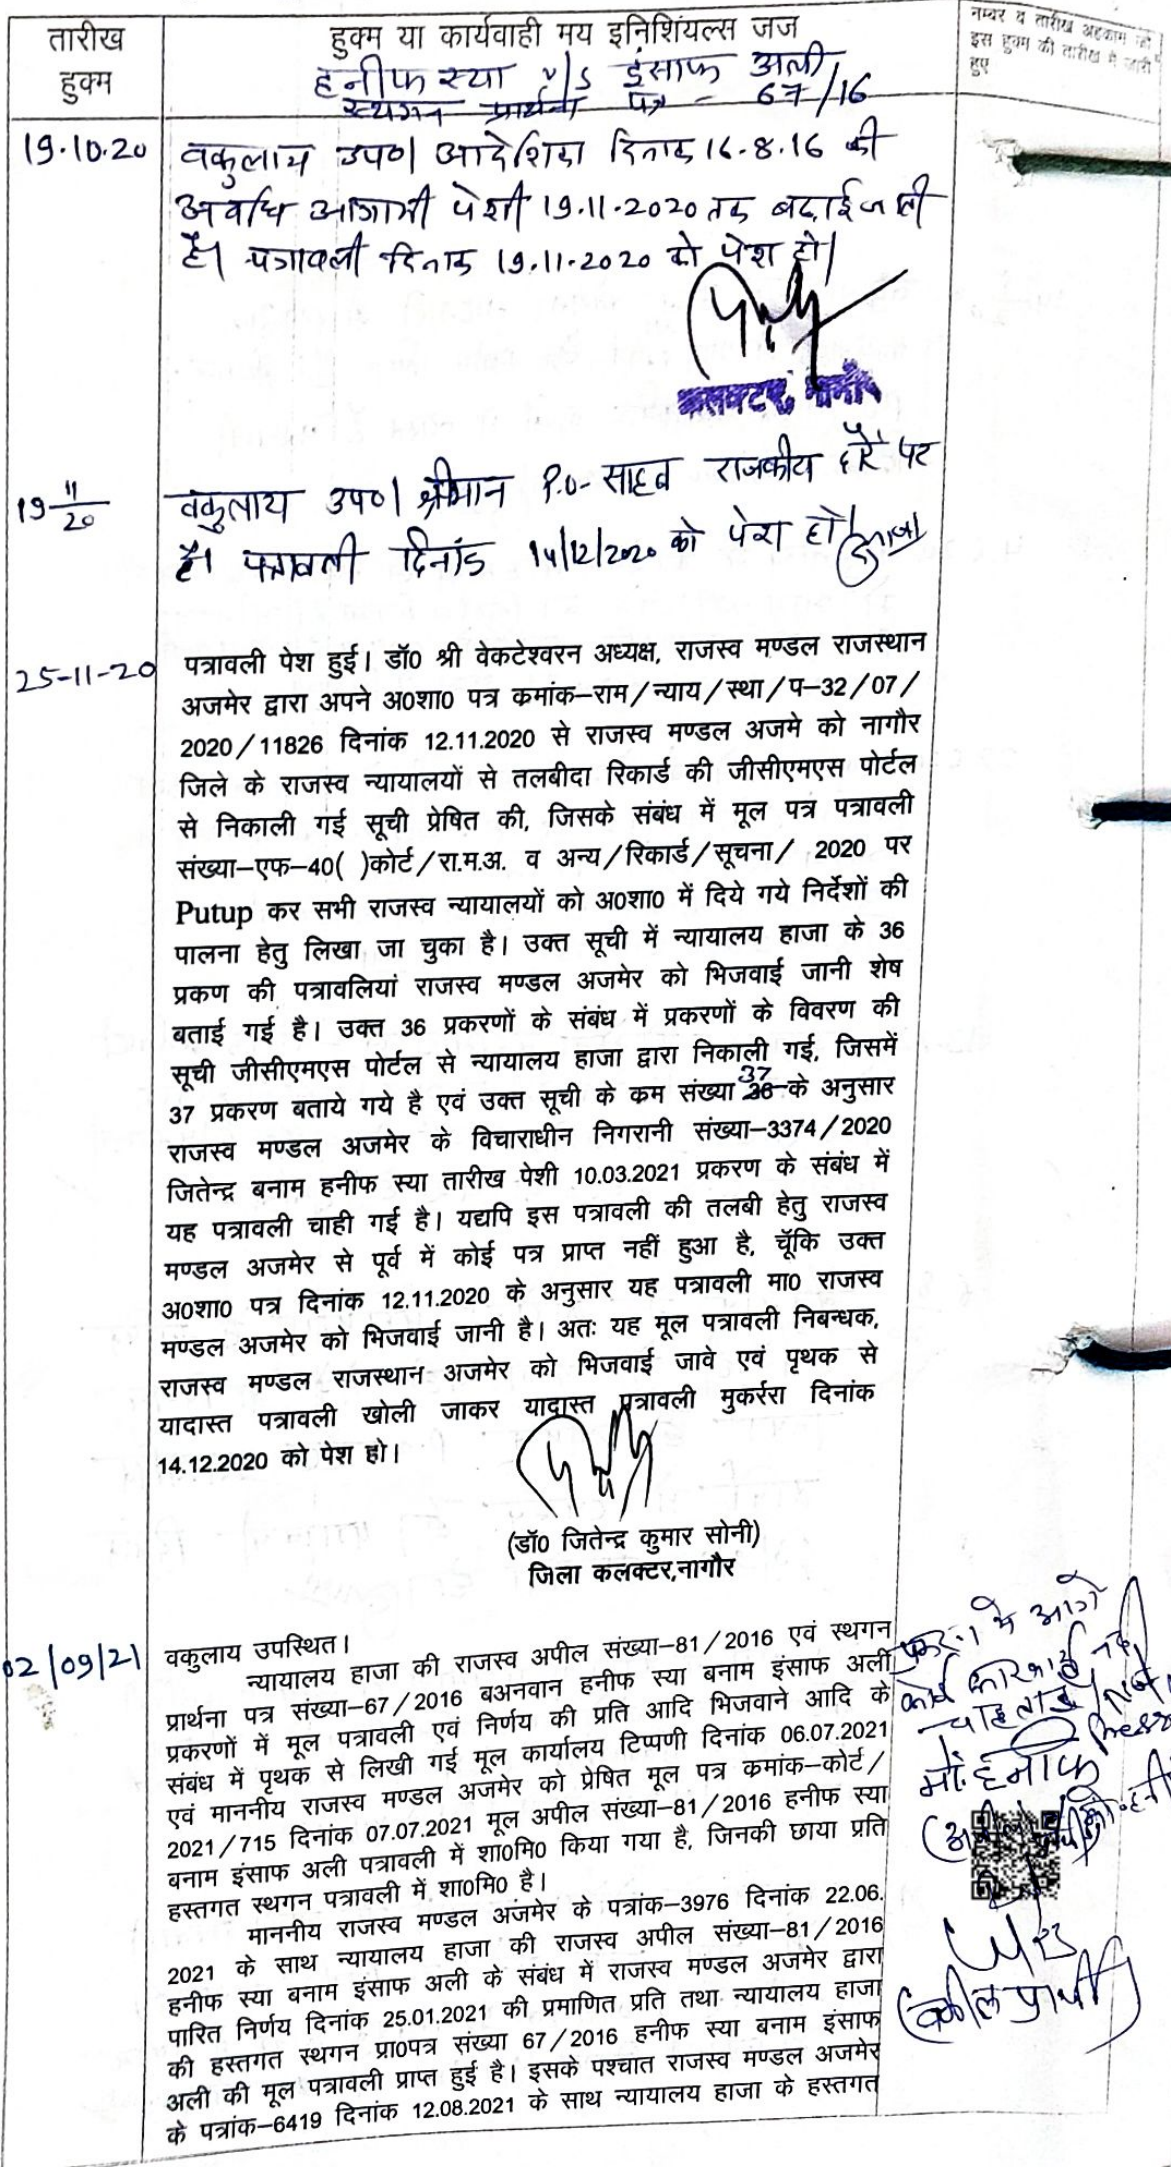 तारीख
हुक्म
हुक्म या कार्यवाही मय इनिशियल्स जज
नम्बर व तारीख अहकाम जो
इस हुक्म की तारीख में जारी
हुए
हनीफ स्या v/s इंसाफ अली
स्थगन प्रार्थना पत्र - 67/16
19.10.20
वकुलाय उप०। आदेशिका दिनांक 16.8.16 की
अवधि आगामी पेशी 19.11.2020 तक बढ़ाई जाती
है। पत्रावली दिनांक 19.11.2020 को पेश हो।
कलक्टर, नागौर
19 11/20
वकुलाय उप०। श्रीमान P.O. साहब राजकीय दौरे पर
है। पत्रावली दिनांक 14/12/2020 को पेश हो।
25-11-20
पत्रावली पेश हुई। डॉ0 श्री वेकटेश्वरन अध्यक्ष, राजस्व मण्डल राजस्थान
अजमेर द्वारा अपने अ0शा0 पत्र कमांक–राम/न्याय/स्था/प–32/07/
2020/11826 दिनांक 12.11.2020 से राजस्व मण्डल अजमे को नागौर
जिले के राजस्व न्यायालयों से तलबीदा रिकार्ड की जीसीएमएस पोर्टल
से निकाली गई सूची प्रेषित की, जिसके संबंध में मूल पत्र पत्रावली
संख्या–एफ–40( )कोर्ट/रा.म.अ. व अन्य/रिकार्ड/सूचना/ 2020 पर
Putup कर सभी राजस्व न्यायालयों को अ0शा0 में दिये गये निर्देशों की
पालना हेतु लिखा जा चुका है। उक्त सूची में न्यायालय हाजा के 36
प्रकण की पत्रावलियां राजस्व मण्डल अजमेर को भिजवाई जानी शेष
बताई गई है। उक्त 36 प्रकरणों के संबंध में प्रकरणों के विवरण की
सूची जीसीएमएस पोर्टल से न्यायालय हाजा द्वारा निकाली गई, जिसमें
37 प्रकरण बताये गये है एवं उक्त सूची के कम संख्या 37 36 के अनुसार
राजस्व मण्डल अजमेर के विचाराधीन निगरानी संख्या–3374/2020
जितेन्द्र बनाम हनीफ स्या तारीख पेशी 10.03.2021 प्रकरण के संबंध में
यह पत्रावली चाही गई है। यद्यपि इस पत्रावली की तलबी हेतु राजस्व
मण्डल अजमेर से पूर्व में कोई पत्र प्राप्त नहीं हुआ है, चूॅकि उक्त
अ0शा0 पत्र दिनांक 12.11.2020 के अनुसार यह पत्रावली मा0 राजस्व
मण्डल अजमेर को भिजवाई जानी है। अतः यह मूल पत्रावली निबन्धक,
राजस्व मण्डल राजस्थान अजमेर को भिजवाई जावे एवं पृथक से
यादास्त पत्रावली खोली जाकर यादास्त पत्रावली मुकर्ररा दिनांक
14.12.2020 को पेश हो।
(डॉ0 जितेन्द्र कुमार सोनी)
जिला कलक्टर,नागौर
02/09/21
वकुलाय उपस्थित।
न्यायालय हाजा की राजस्व अपील संख्या–81/2016 एवं स्थगन
प्रार्थना पत्र संख्या–67/2016 बअनवान हनीफ स्या बनाम इंसाफ अली
प्रकरणों में मूल पत्रावली एवं निर्णय की प्रति आदि भिजवाने आदि के
संबंध में पृथक से लिखी गई मूल कार्यालय टिप्पणी दिनांक 06.07.2021
एवं माननीय राजस्व मण्डल अजमेर को प्रेषित मूल पत्र कमांक–कोर्ट/
2021/715 दिनांक 07.07.2021 मूल अपील संख्या–81/2016 हनीफ स्या
बनाम इंसाफ अली पत्रावली में शा0मि0 किया गया है, जिनकी छाया प्रति
हस्तगत स्थगन पत्रावली में शा0मि0 है।
माननीय राजस्व मण्डल अजमेर के पत्रांक–3976 दिनांक 22.06.
2021 के साथ न्यायालय हाजा की राजस्व अपील संख्या–81/2016
हनीफ स्या बनाम इंसाफ अली के संबंध में राजस्व मण्डल अजमेर द्वारा
पारित निर्णय दिनांक 25.01.2021 की प्रमाणित प्रति तथा न्यायालय हाजा
की हस्तगत स्थगन प्रा0पत्र संख्या 67/2016 हनीफ स्या बनाम इंसाफ
अली की मूल पत्रावली प्राप्त हुई है। इसके पश्चात राजस्व मण्डल अजमेर
के पत्रांक–6419 दिनांक 12.08.2021 के साथ न्यायालय हाजा के हस्तगत
में आगे
कोई कारवाई नहीं
चाहता हूँ
मो. हनीफ
(वकील प्रार्थी)